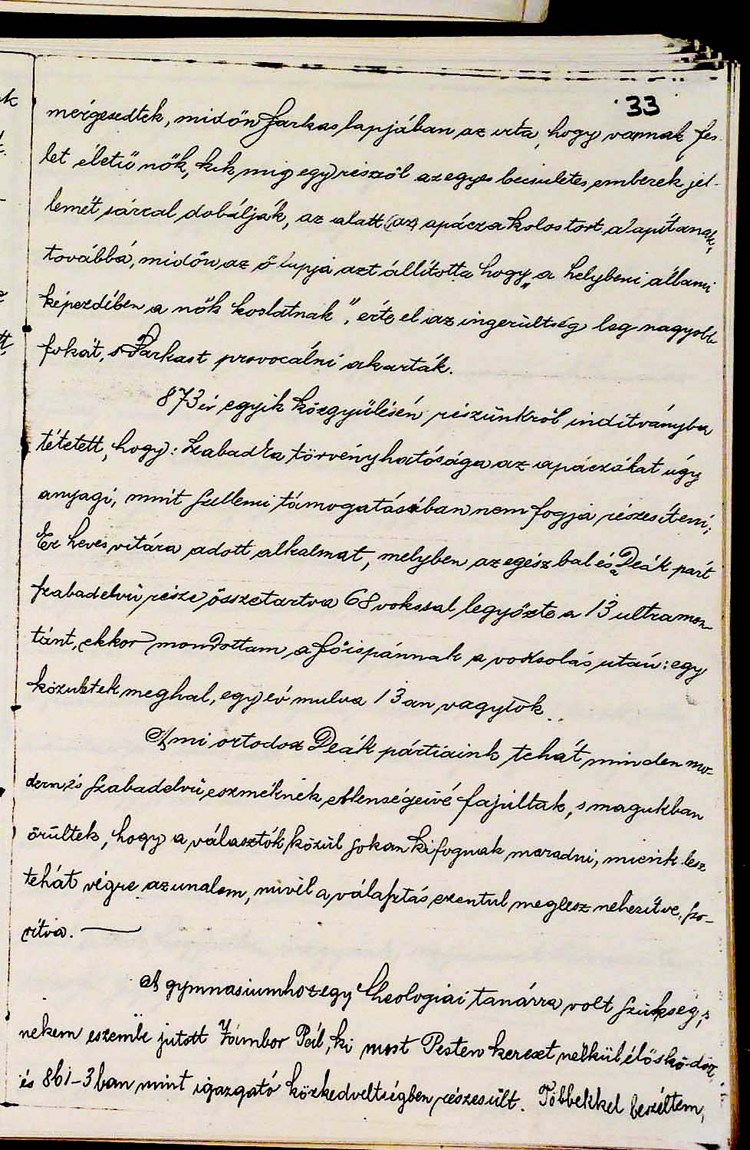 33
mérgesedtek, midőn Farkas lapjában az irta, hogy vannak fes-
let életü nők, kik mig egy részről az egyes becsületes emberek jel-
lemét sárral dobálják, az alatt (az) apácza kolostort alapitanak,
továbbá, midőn az ő lapja azt állitotta hogy „a helybeni állami
képezdében a nők korlátnak", érte el az ingerültség leg nagyobb
fokát, s Farkast provocálni akarták.
873 év egyik közgyülésén részünkről inditványba
tétetett, hogy: Szabadka törvényhatósága az apáczákat ugy
anyagi, mint szellemi támogatásában nem fogja részesiteni;
Ez heves vitára adott alkalmat, melyben az egész bal és a Deák párt
szabadelvü része összetartva 68 vokssal legyőzte a 13 ultramon
tánt, ekkor mondottam a főispánnak a voksolás után: egy
közületek meghal, egy év mulva 13an vagytok.
A mi ortodox Deák pártiaink tehát minden mo-
dern és szabadelvü eszméknek ellenségeivé fajultak, s magukban
örültek, hogy a választók közül sokan kifognak maradni, mienk lesz
tehát végre az uralom, mivel a választás ezentul meglesz nehezitve, szo-
ritva. —
A gymnasiumhoz egy theologiai tanárra volt szükség,
nekem eszembe jutott Zámbor Pál, ki most Pesten kereset nélkül élősködött
és 861-3ban mint igazgató közkedveltségben részesült. Többekkel beszéltem,